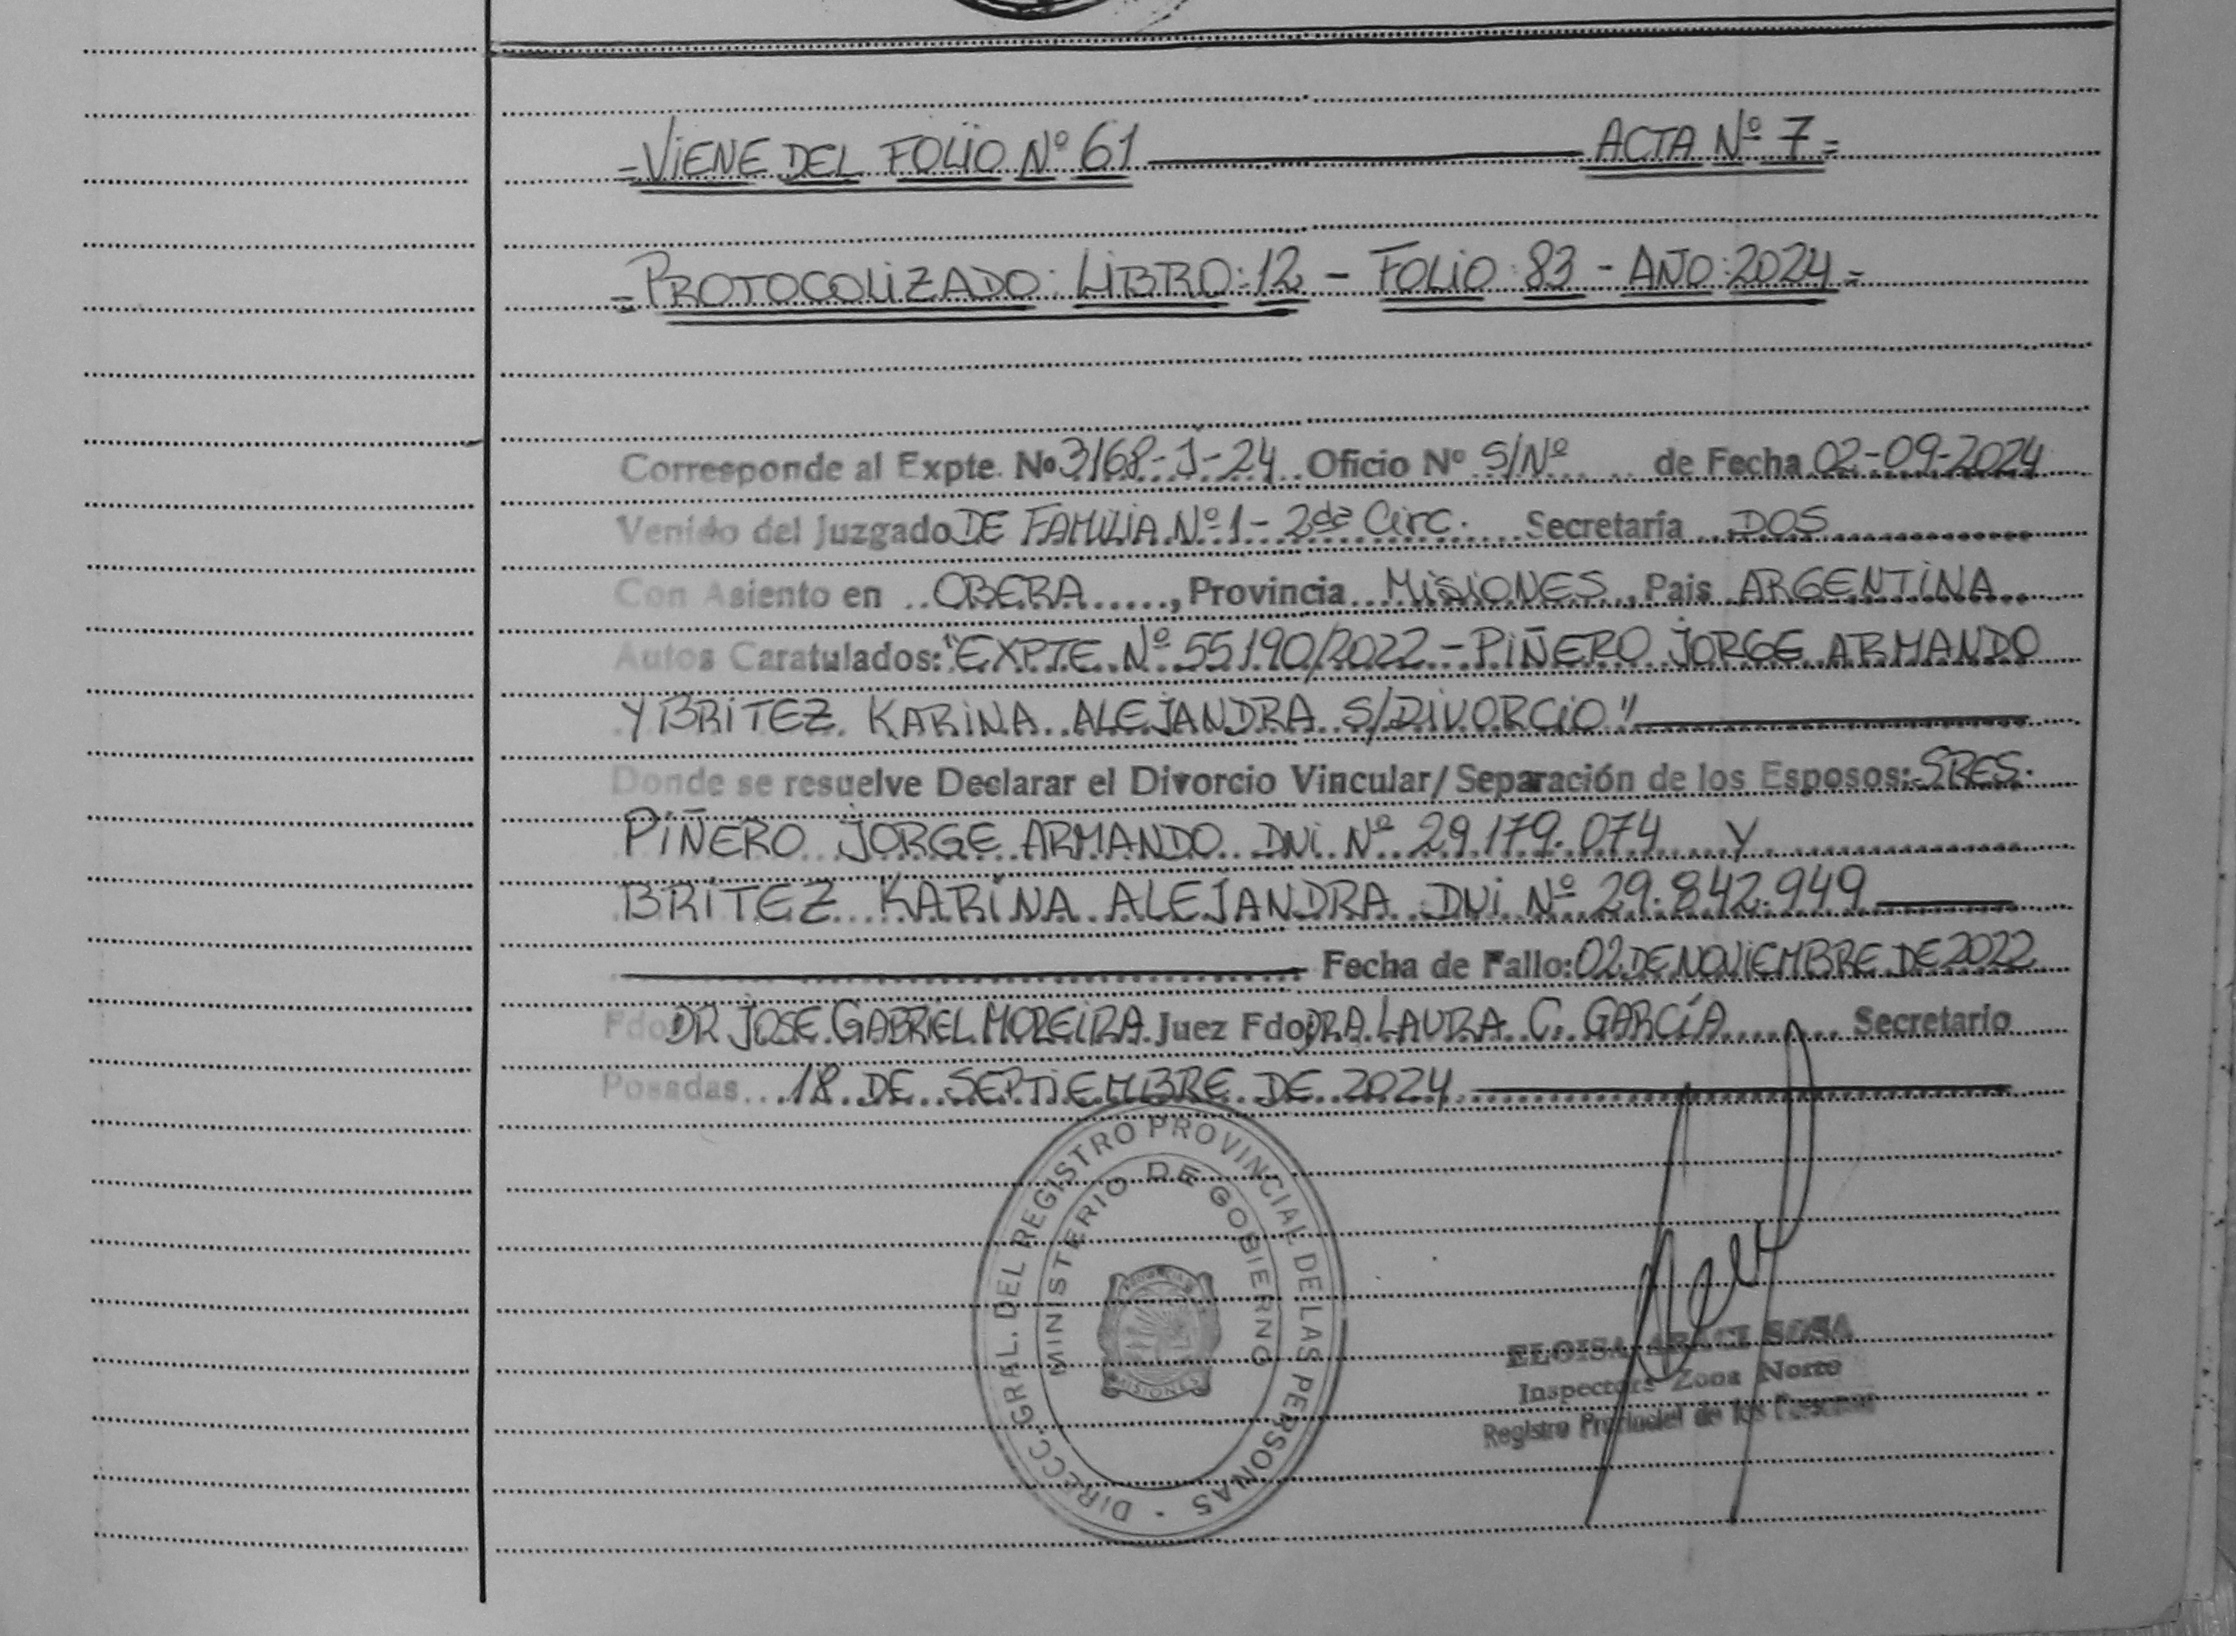 =VIENE DEL FOLIO Nº 61 ACTA Nº 7=
=PROTOCOLIZADO: LIBRO: 12 - FOLIO: 83 - AÑO: 2024=
Corresponde al Expte. Nº 3168-J-24 Oficio Nº S/Nº de Fecha 02-09-2024
Venido del Juzgado DE FAMILIA Nº 1 - 2da Circ. Secretaría DOS
Con Asiento en OBERA, Provincia MISIONES, Pais ARGENTINA
Autos Caratulados: "EXPTE Nº 55190/2022 - PIÑERO JORGE ARMANDO
Y BRITEZ KARINA ALEJANDRA S/DIVORCIO"
Donde se resuelve Declarar el Divorcio Vincular/Separación de los Esposos: SRES.
PIÑERO JORGE ARMANDO DNI Nº 29.179.074 Y
BRITEZ KARINA ALEJANDRA DNI Nº 29.842.949
Fecha de Fallo: 02 DE NOVIEMBRE DE 2022
Fdo DR JOSE GABRIEL MOREIRA Juez Fdo DRA LAURA C. GARCÍA Secretario
Posadas 18 DE SEPTIEMBRE DE 2024
DIRECC. GRAL. DEL REGISTRO PROVINCIAL DE LAS PERSONAS -
MINISTERIO DE GOBIERNO
PROVINCIA
MISIONES
ELOISA ARACI SOSA
Inspectora Zona Norte
Registro Provincial de las Personas